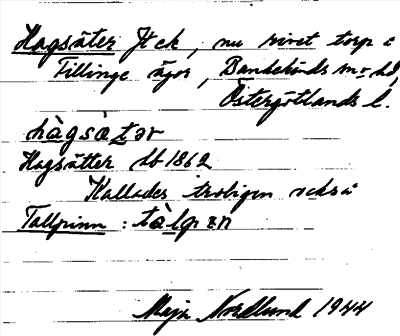 Hagsäter Jtck, nu rivet torp i
Fillinge ägor, Bankekinds sn o hd,
Östergötlands l.
hàgsà̱tər
Hagsätter Jb 1862
Kallades troligen också
Tallpinn : tàlpɪn
Maja Nordlund 1944